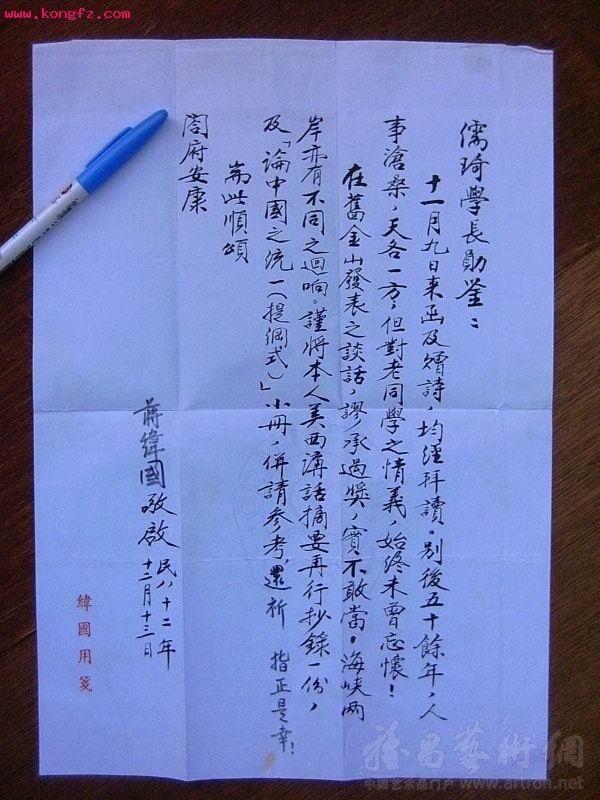 www.kongfz.com
儒琦學長勛鉴：
十一月九日来函及贈詩，均經拜讀。別後五十餘年，人
事滄桑，天各一方，但對老同學之情義，始終未曾忘懷！
在舊金山發表之談話，謬承過獎，實不敢當。海峽两
岸亦有不同之迴响。謹將本人美西講話摘要再行抄錄一份，
及「論中國之統一（提綱式）」小冊，併請參考，還祈 指正是幸！
耑此順頌
閤府安康
蔣緯國敬啟
民八十二年
十二月十三日
緯國用箋
雅昌藝術網
中国艺术品门户 www.artron.net